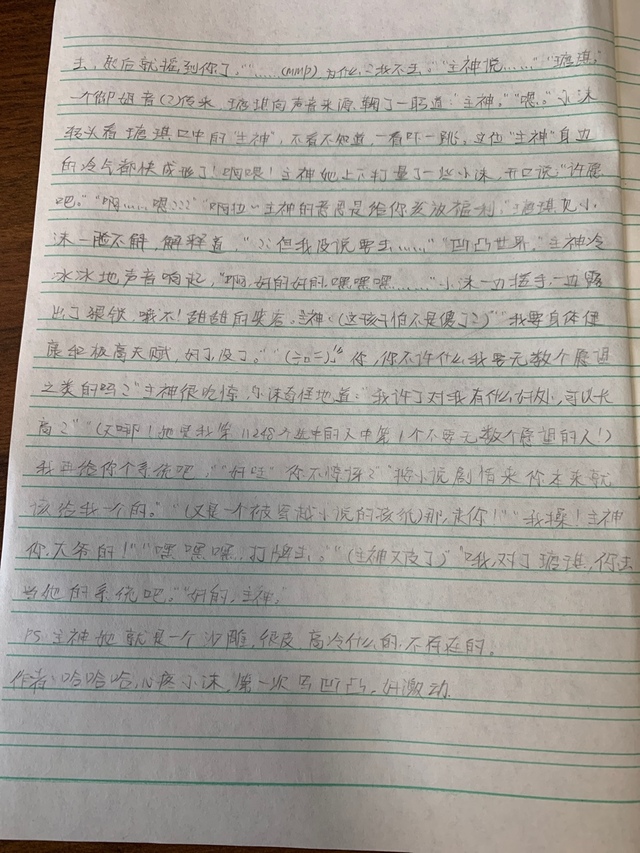 去，然后就摇到你了。”“……(mmp) 为什么？我不去。”“主神说……”“瑭琪。”
一个御姐音(?)传来，瑭琪向声音来源鞠了一躬道：“主神。”“嗯。”小沫
抬头看瑭琪口中的“主神”，不看不知道，一看吓一跳，这位“主神”身边
的冷气都快成形了！啊喂！主神她上下打量了一些小沫，开口说“许愿
吧。”“啊……嗯???”“啊拉~主神的意思是给你发放福利。”瑭琪见小
沫一脸不解，解释道，“??但我没说要去……”“凹凸世界。”主神冷
冰冰地声音响起，“啊，好的好的，嘿嘿嘿……”小沫一边搓手一边露
出了猥琐，哦不！甜甜的笑容。主神：(这孩子怕不是傻了？)“我要身体健
康和极高天赋，好了没了。”“(三口三)” 你，你不许什么我要无数个愿望
之类的吗？”主神很吃惊，小沫奇怪地道：“我许了对我有什么好处，可以长
高？”“(天哪！她是我第11248个选中的人中第1个不要无数个愿望的人！)
我再给你个系统吧，”“好哇”你不惊讶？”“按小说剧情来你本来就
该给我一个的。”“(又是一个被穿越小说的孩纸)那，走你！”“我操！主神
你大爷的！”“嘿嘿嘿，打牌去。”“(主神又皮了)”“哦，对了瑭琪，你去
当他的系统吧。”“好的，主神。”
PS.主神她就是一个沙雕，很皮，高冷什么的，不存在的。
作者：哈哈哈，心疼小沫，第一次写凹凸，好激动.